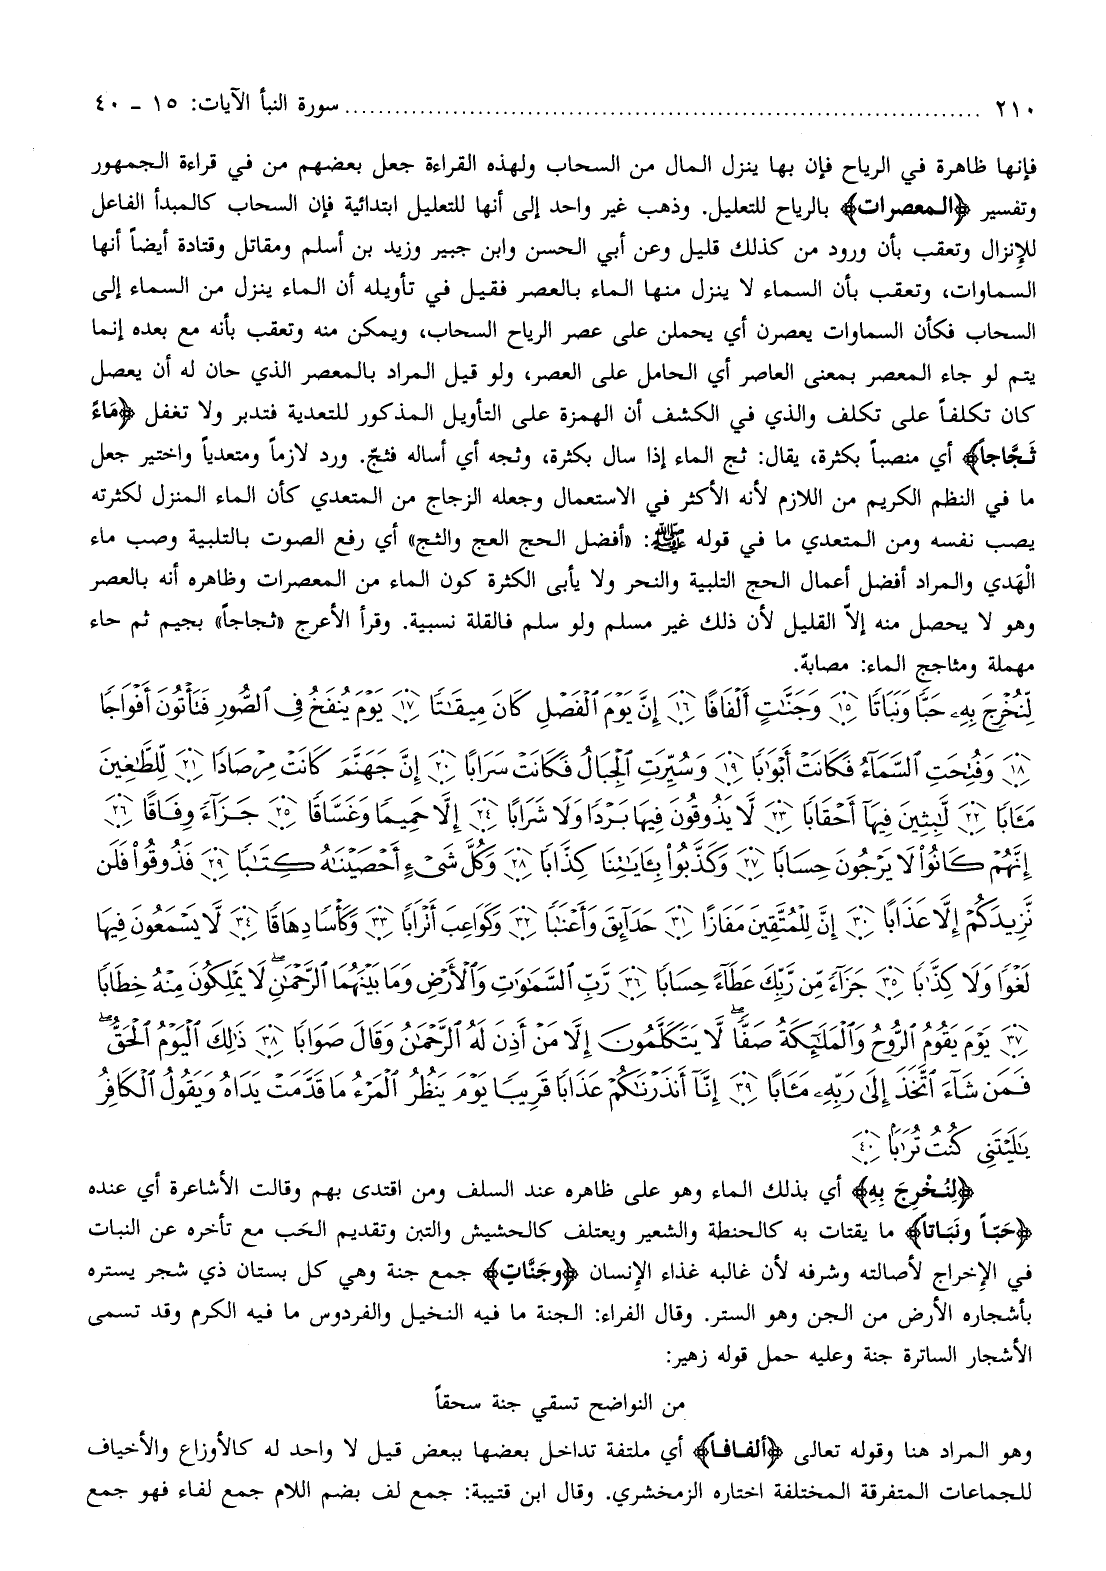 ٢١٠ ............................................................................... سورة النبأ الآيات: ١٥ - ٤٠
فإنها ظاهرة في الرياح فإن بها ينزل المال من السحاب ولهذه القراءة جعل بعضهم من في قراءة الجمهور
وتفسير ﴿المعصرات﴾ بالرياح للتعليل. وذهب غير واحد إلى أنها للتعليل ابتدائية فإن السحاب كالمبدأ الفاعل
للإنزال وتعقب بأن ورود من كذلك قليل وعن أبي الحسن وابن جبير وزيد بن أسلم ومقاتل وقتادة أيضاً أنها
السماوات، وتعقب بأن السماء لا ينزل منها الماء بالعصر فقيل في تأويله أن الماء ينزل من السماء إلى
السحاب فكأن السماوات يعصرن أي يحملن على عصر الرياح السحاب، ويمكن منه وتعقب بأنه مع بعده إنما
يتم لو جاء المعصر بمعنى العاصر أي الحامل على العصر، ولو قيل المراد بالمعصر الذي حان له أن يعصل
كان تكلفاً على تكلف والذي في الكشف أن الهمزة على التأويل المذكور للتعدية فتدبر ولا تغفل ﴿مَاءً
ثَجَّاجاً﴾ أي منصباً بكثرة، يقال: ثج الماء إذا سال بكثرة، وثجه أي أساله فثجّ. ورد لازماً ومتعدياً واختير جعل
ما في النظم الكريم من اللازم لأنه الأكثر في الاستعمال وجعله الزجاج من المتعدي كأن الماء المنزل لكثرته
يصب نفسه ومن المتعدي ما في قوله ﷺ: «أفضل الحج العج والثج» أي رفع الصوت بالتلبية وصب ماء
الْهَدي والمراد أفضل أعمال الحج التلبية والنحر ولا يأبى الكثرة كون الماء من المعصرات وظاهره أنه بالعصر
وهو لا يحصل منه إلاّ القليل لأن ذلك غير مسلم ولو سلم فالقلة نسبية. وقرأ الأعرج «ثجاجاً» بجيم ثم حاء
مهملة ومثاجج الماء: مصابة.
لِّنُخْرِجَ بِهِۦ حَبًّا وَنَبَاتًا ﴿١٥﴾ وَجَنَّٰتٍ أَلْفَافًا ﴿١٦﴾ إِنَّ يَوْمَ الْفَصْلِ كَانَ مِيقَٰتًا ﴿١٧﴾ يَوْمَ يُنفَخُ فِى الصُّورِ فَتَأْتُونَ أَفْوَاجًا
﴿١٨﴾ وَفُتِحَتِ السَّمَآءُ فَكَانَتْ أَبْوَٰبًا ﴿١٩﴾ وَسُيِّرَتِ الْجِبَالُ فَكَانَتْ سَرَابًا ﴿٢٠﴾ إِنَّ جَهَنَّمَ كَانَتْ مِرْصَادًا ﴿٢١﴾ لِّلطَّٰغِينَ
مَـَٔابًا ﴿٢٢﴾ لَّٰبِثِينَ فِيهَآ أَحْقَابًا ﴿٢٣﴾ لَّا يَذُوقُونَ فِيهَا بَرْدًا وَلَا شَرَابًا ﴿٢٤﴾ إِلَّا حَمِيمًا وَغَسَّاقًا ﴿٢٥﴾ جَزَآءً وِفَاقًا ﴿٢٦﴾
إِنَّهُمْ كَانُوا۟ لَا يَرْجُونَ حِسَابًا ﴿٢٧﴾ وَكَذَّبُوا۟ بِـَٔايَٰتِنَا كِذَّابًا ﴿٢٨﴾ وَكُلَّ شَىْءٍ أَحْصَيْنَٰهُ كِتَٰبًا ﴿٢٩﴾ فَذُوقُوا۟ فَلَن
نَّزِيدَكُمْ إِلَّا عَذَابًا ﴿٣٠﴾ إِنَّ لِلْمُتَّقِينَ مَفَازًا ﴿٣١﴾ حَدَآئِقَ وَأَعْنَٰبًا ﴿٣٢﴾ وَكَوَاعِبَ أَتْرَابًا ﴿٣٣﴾ وَكَأْسًا دِهَاقًا ﴿٣٤﴾ لَّا يَسْمَعُونَ فِيهَا
لَغْوًا وَلَا كِذَّٰبًا ﴿٣٥﴾ جَزَآءً مِّن رَّبِّكَ عَطَآءً حِسَابًا ﴿٣٦﴾ رَّبِّ السَّمَٰوَٰتِ وَالْأَرْضِ وَمَا بَيْنَهُمَا الرَّحْمَٰنِۖ لَا يَمْلِكُونَ مِنْهُ خِطَابًا
﴿٣٧﴾ يَوْمَ يَقُومُ الرُّوحُ وَالْمَلَٰٓئِكَةُ صَفًّاۖ لَّا يَتَكَلَّمُونَ إِلَّا مَنْ أَذِنَ لَهُ الرَّحْمَٰنُ وَقَالَ صَوَابًا ﴿٣٨﴾ ذَٰلِكَ الْيَوْمُ الْحَقُّۖ
فَمَن شَآءَ اتَّخَذَ إِلَىٰ رَبِّهِۦ مَـَٔابًا ﴿٣٩﴾ إِنَّآ أَنذَرْنَٰكُمْ عَذَابًا قَرِيبًا يَوْمَ يَنظُرُ الْمَرْءُ مَا قَدَّمَتْ يَدَاهُ وَيَقُولُ الْكَافِرُ
يَٰلَيْتَنِى كُنتُ تُرَٰبًۢا ﴿٤٠﴾
﴿لِنُخْرِجَ بِهِ﴾ أي بذلك الماء وهو على ظاهره عند السلف ومن اقتدى بهم وقالت الأشاعرة أي عنده
﴿حَبّاً ونَبَاتاً﴾ ما يقتات به كالحنطة والشعير ويعتلف كالحشيش والتبن وتقديم الحَب مع تأخره عن النبات
في الإخراج لأصالته وشرفه لأن غالبه غذاء الإنسان ﴿وجَنَّاتٍ﴾ جمع جنة وهي كل بستان ذي شجر يستره
بأشجاره الأرض من الجن وهو الستر. وقال الفراء: الجنة ما فيه النخيل والفردوس ما فيه الكرم وقد تسمى
الأشجار الساترة جنة وعليه حمل قوله زهير:
من النواضح تسقي جنة سحقاً
وهو المراد هنا وقوله تعالى ﴿ألفافاً﴾ أي ملتفة تداخل بعضها ببعض قيل لا واحد له كالأوزاع والأخياف
للجماعات المتفرقة المختلفة اختاره الزمخشري. وقال ابن قتيبة: جمع لف بضم اللام جمع لفاء فهو جمع